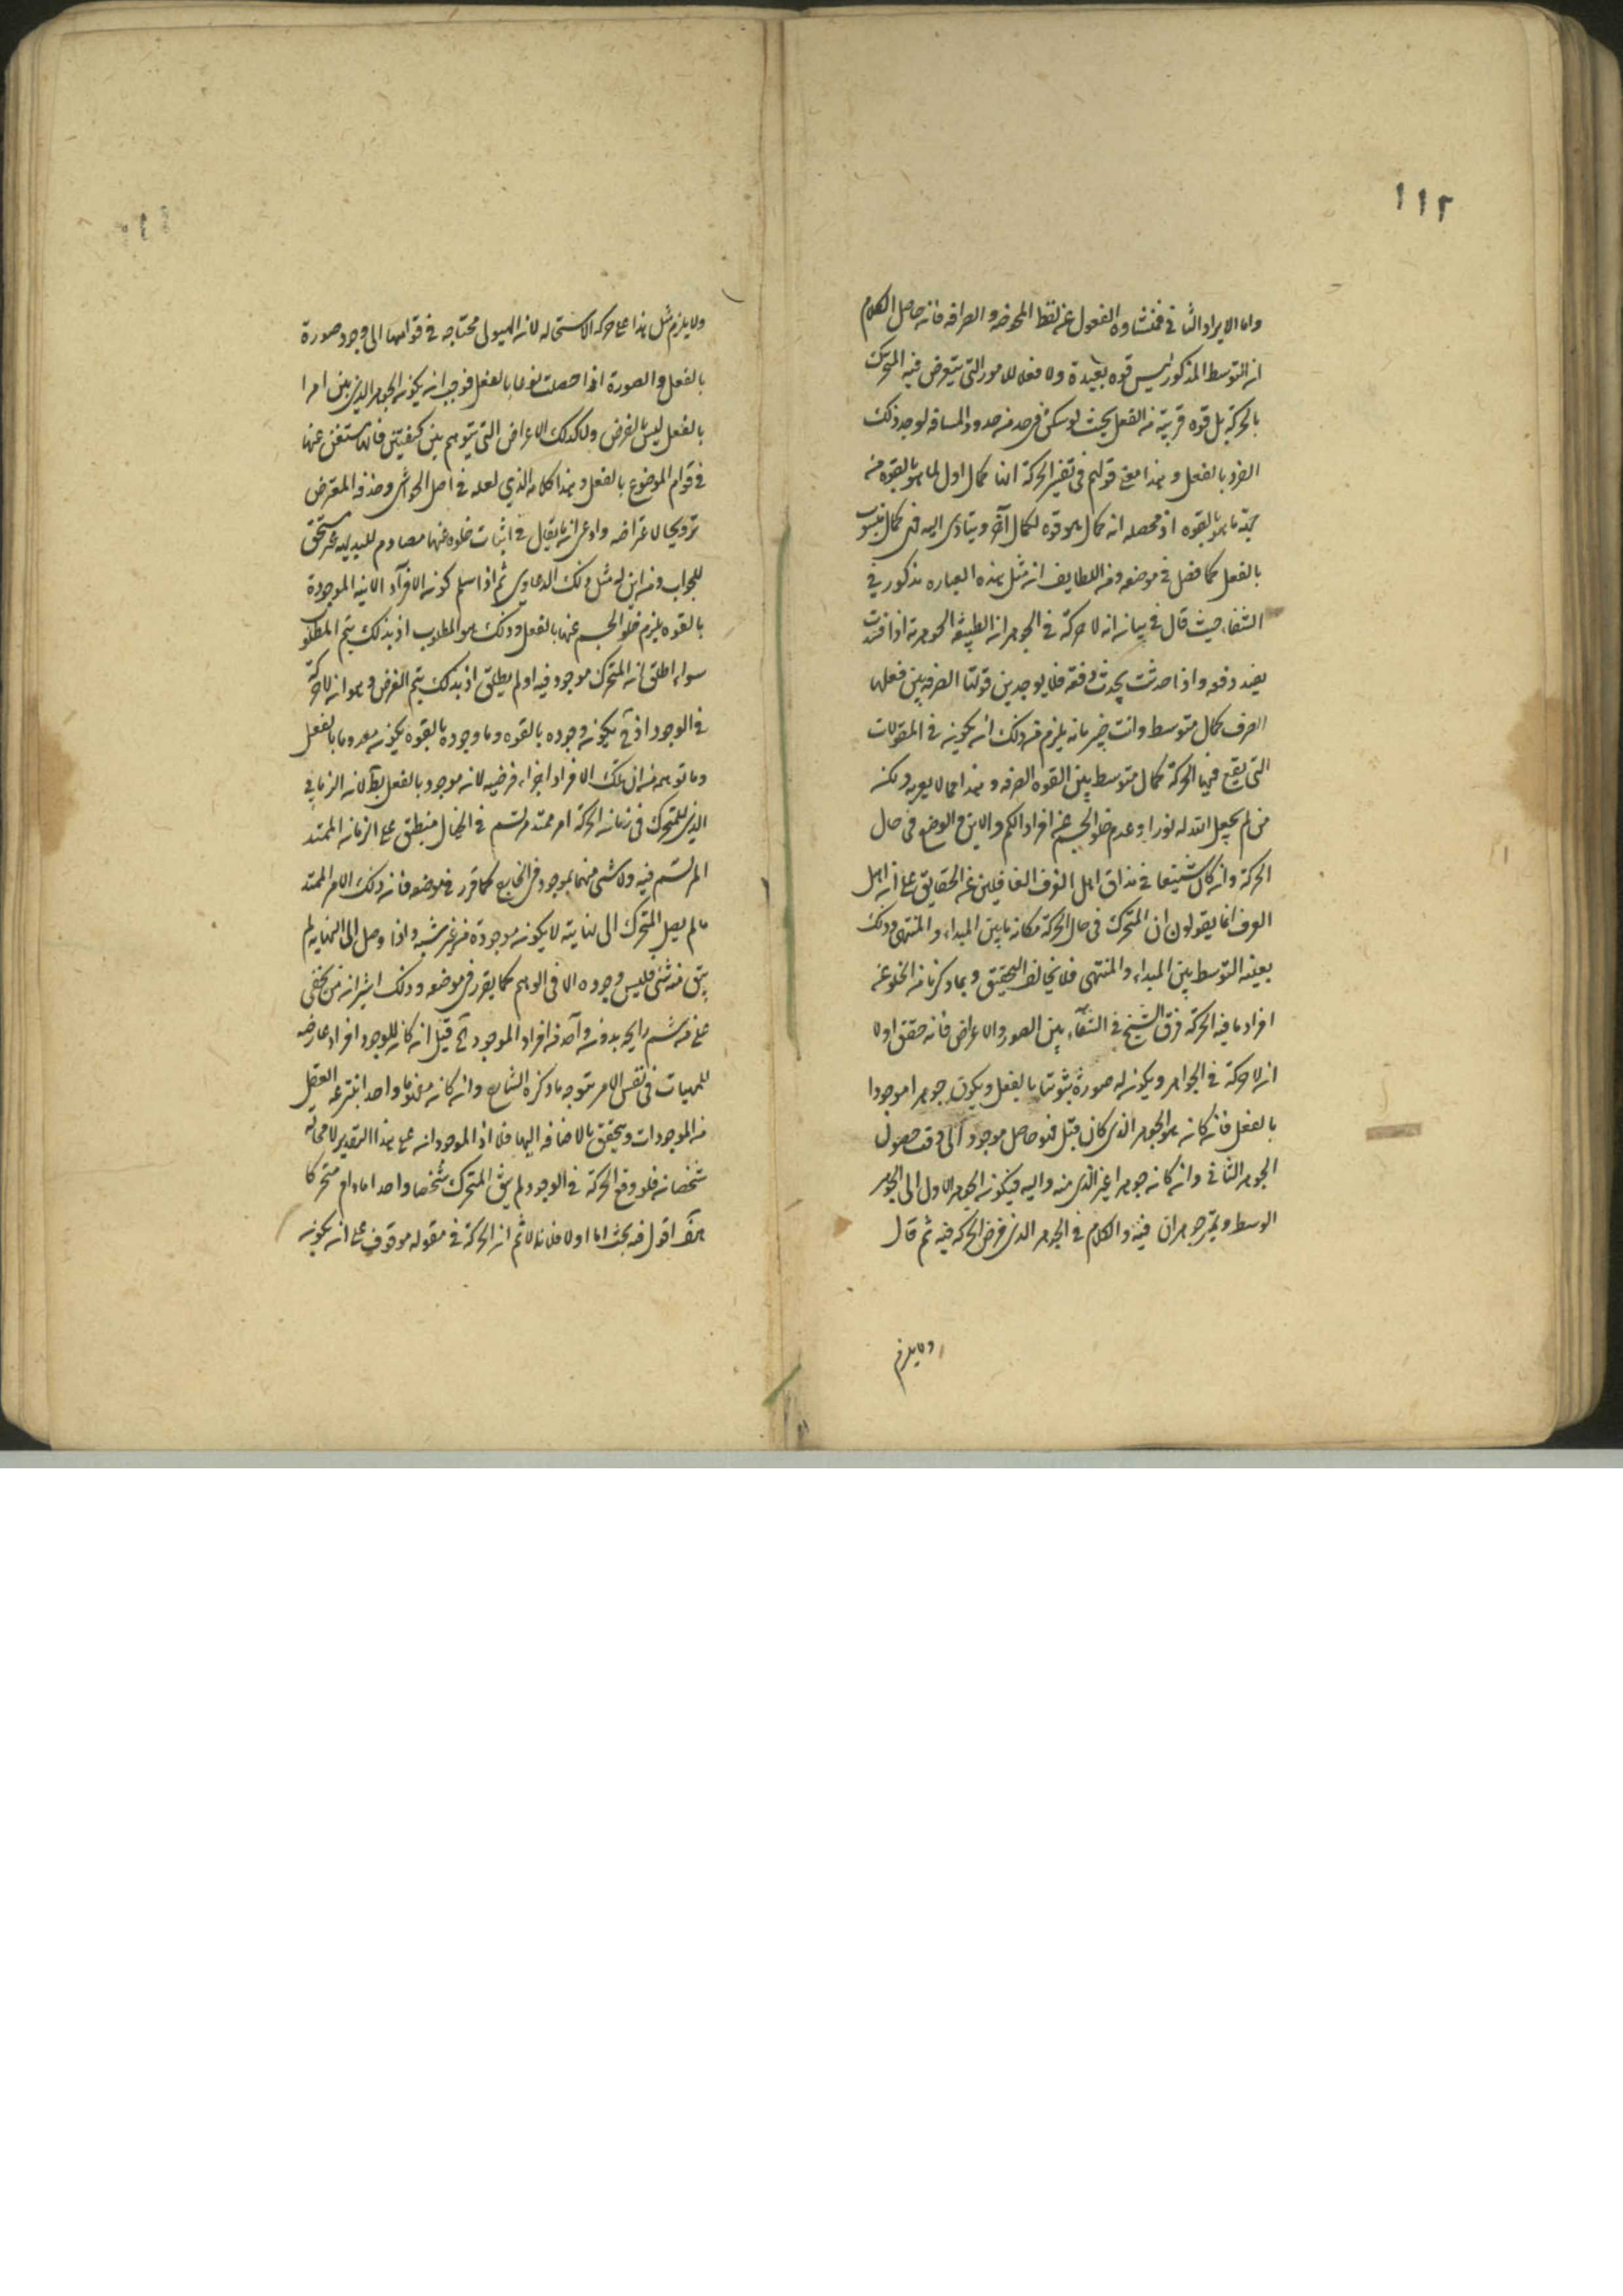 ١١٢
واما الايراد الثاني فمنشاوه الغفول عن لفظ المحوضه والصرافه فانه حاصل الكلام
ان التوسط المذكور ليس قوه بعيدة ولا فعلا للامور التي يتعرض فيه المتحرك
بالحركة بل قوه قريبة من الفعل بحيث لو سكن في حد من حدود المسافه لوجد ذلك
الفرد بالفعل وهذا معنى قولهم في تفسير الحركة انها كمال اول لما هو بالقوه من
جهة ما هو بالقوه اذ محصله انه كمال هو قوه لكمال آخر ويتادى اليه فهي كمال
بالفعل كما فصل في موضعه ومن اللطايف ان مثل هذه العباره مذكور في
الشفاء حيث قال في بيان انه لا حركة في الجوهر ان الطبيعة الجوهرية اذا فسدت
يفسد دفعه واذا حدثت يحدث دفعة فلا يوجد بين قوتها الصرفه بين فعلها
الصرف كمال متوسط وانت خبير بانه يلزم من ذلك ان يكون في المقولات
التي يقع فيها الحركة كمال متوسط بين القوه الصرفه وهذا مما لا يعربه ولكن
من لم يجعل الله له نورا وعدم خلو الجسم عن افراد الكم والاين والوضع في حال
الحركة وان كان شنيعا في مذاق اهل العرف الغافلين عن الحقايق على ان اهل
العرف انما يقولون ان المتحرك في حال الحركة مكانه ما بين المبداء والمنتهى وذلك
بعينه التوسط بين المبداء والمنتهى فلا يخالف التحقيق وبما ذكرنا من الخلو عن
افراد ما فيه الحركة فرق الشيخ في الشفاء بين الصور والاعراض فانه حقق اولا
ان لا حركة في الجواهر ويكون له صورة ثبوتها بالفعل ويكون جوهرا موجودا
بالفعل فان كان هو الجوهر الذي كان قبل فهو حاصل موجود الى وقت حصول
الجوهر الثاني وان كان جوهرا غير الذي منه واليه فيكون الجوهر الاول الى الجوهر
الوسط وتميز جوهران فيه والكلام في الجوهر الذي فرض الحركه فيه ثم قال
ولا يلزم
ولا يلزم مثل هذا على حركه الاستحاله لان الهيولى محتاجه في قوامها الى وجود صورة
بالفعل والصورة اذا حصلت نوعا بالفعل فوجب ان يكون الجوهر الذي بين امرا
بالفعل ليس بالفرض ولا كذلك الاعراض التي يتوهم بين كيفيتين فانها مستغنى عنها
في قوام الموضوع بالفعل وهذا كلامه الذي لعله في اصل الحواشي وحذفه المعترض
ترويجا لاعتراضه وادعى ان ما يقال في اثبات خلوه عنها مصادم للبديهه غير مستحق
للجواب ومن اين له مثل ذلك الدعاوى ثم اذا سلم كون الافراد الانيه الموجودة
بالقوه يلزم خلو الجسم عنها بالفعل وذلك هو المطلوب اذ بذلك يتم المطلوب
سواء اطلق ان المتحرك موجود فيه او لم يطلق اذ بذلك يتم الغرض وهو ان لا حركة
في الوجود اذ ح يكون وجوده بالقوه وما وجوده بالقوه يكون معدوما بالفعل
وما توهمه من ان تلك الافراد اجزاء فرضيه لانه موجود بالفعل بط لان الزماني
الذي للمتحرك في زمان الحركة امر ممتد مرتسم في الخيال منطبق على الزمان الممتد
المرتسم فيه ولا شى منهما بموجود في الخارج كما قرر في موضعه فانه ذلك الامر الممتد
ما لم يصل المتحرك الى نهايته لا يكون موجودة من غير شبهه واذا وصل الى النهايه لم
يبق منه شى فليس وجوده الا في الوهم كما يقرر في موضعه وذلك اشهر من ان يخفى
على من شم رايحه بدونه وآحد من افراد الموجود ح قيل ان كان للوجود افراد عارضه
للمهيات في نفس الامر يتوجه ما ذكره الشارح وان كان مفهوما واحدا ينتزعه العقل
من الموجودات ويتحقق بالاضافه اليها فلا اذ الموجود انه على هذا التقدير لا محاله
شخصا فلو وقع الحركة في الوجود لم يبق المتحرك شخصا واحدا ما دام متحركا
هف اقول فيه بحث اما اولا فلانا لا ثم ان الحركة في مقوله موقوف على ان يكون